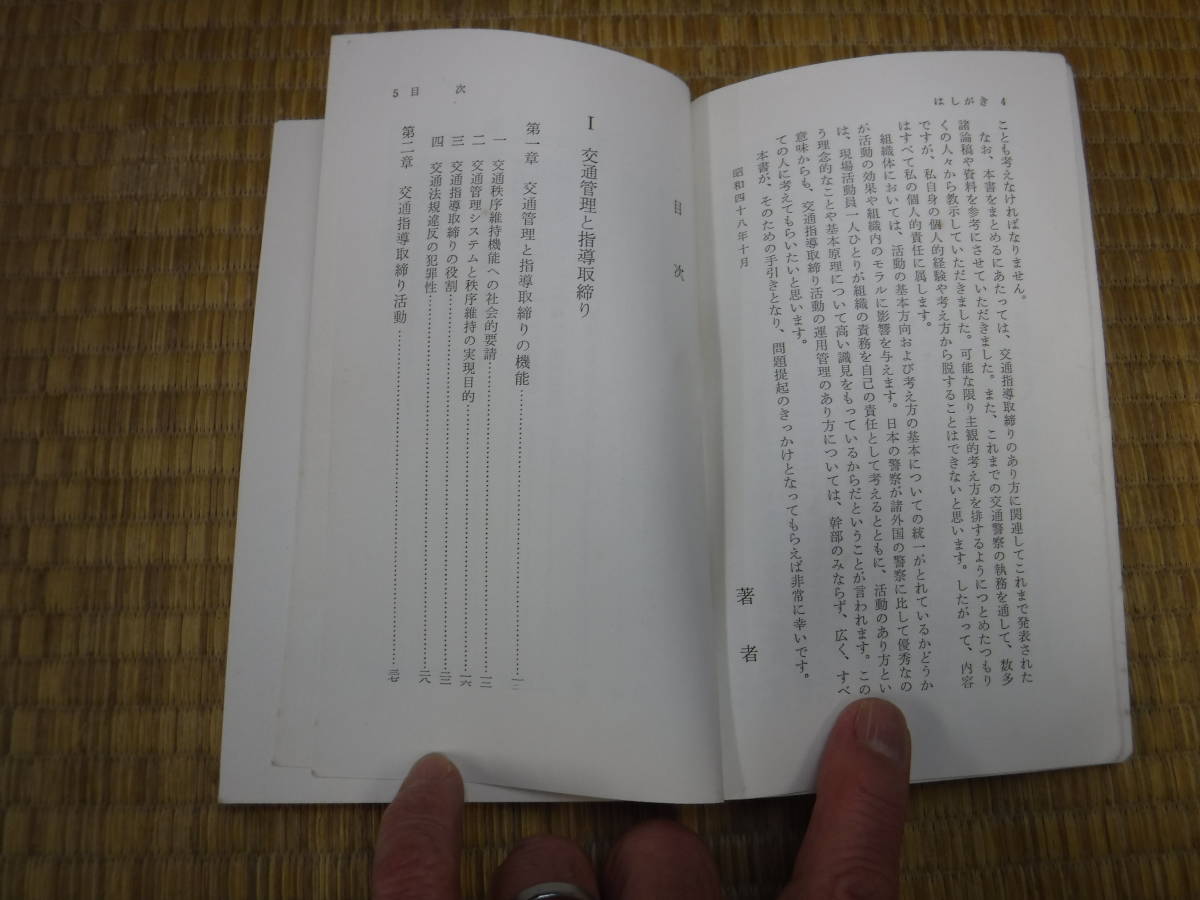 4 はしがき
ことも考えなければなりません。
なお、本書をまとめるにあたっては、交通指導取締りのあり方に関連してこれまで発表された
諸論稿や資料を参考にさせていただきました。また、これまでの交通警察の執務を通して、数多
くの人々から教示していただきました。可能な限り主観的考え方を排するようにつとめたつもり
ですが、私自身の個人的経験や考え方から脱することはできないと思います。したがって、内容
はすべて私の個人的責任に属します。
組織体においては、活動の基本方向および考え方の基本についての統一がとれているかどうか
が活動の効果や組織内のモラルに影響を与えます。日本の警察が諸外国の警察に比して優秀なの
は、現場活動員一人ひとりが組織の責務を自己の責任として考えるとともに、活動のあり方とい
う理念的なことや基本原理について高い識見をもっているからだということが言われます。この
意味からも、交通指導取締り活動の運用管理のあり方については、幹部のみならず、広く、すべ
ての人に考えてもらいたいと思います。
本書が、そのための手引きとなり、問題提起のきっかけとなってもらえば非常に幸いです。
昭和四十八年十月
著者
5 目次
目次
I 交通管理と指導取締り
第一章 交通管理と指導取締りの機能……一三
一 交通秩序維持機能への社会的要請……一三
二 交通管理システムと秩序維持の実現目的……一六
三 交通指導取締りの役割……二三
四 交通法規違反の犯罪性……二八
第二章 交通指導取締り活動……三七